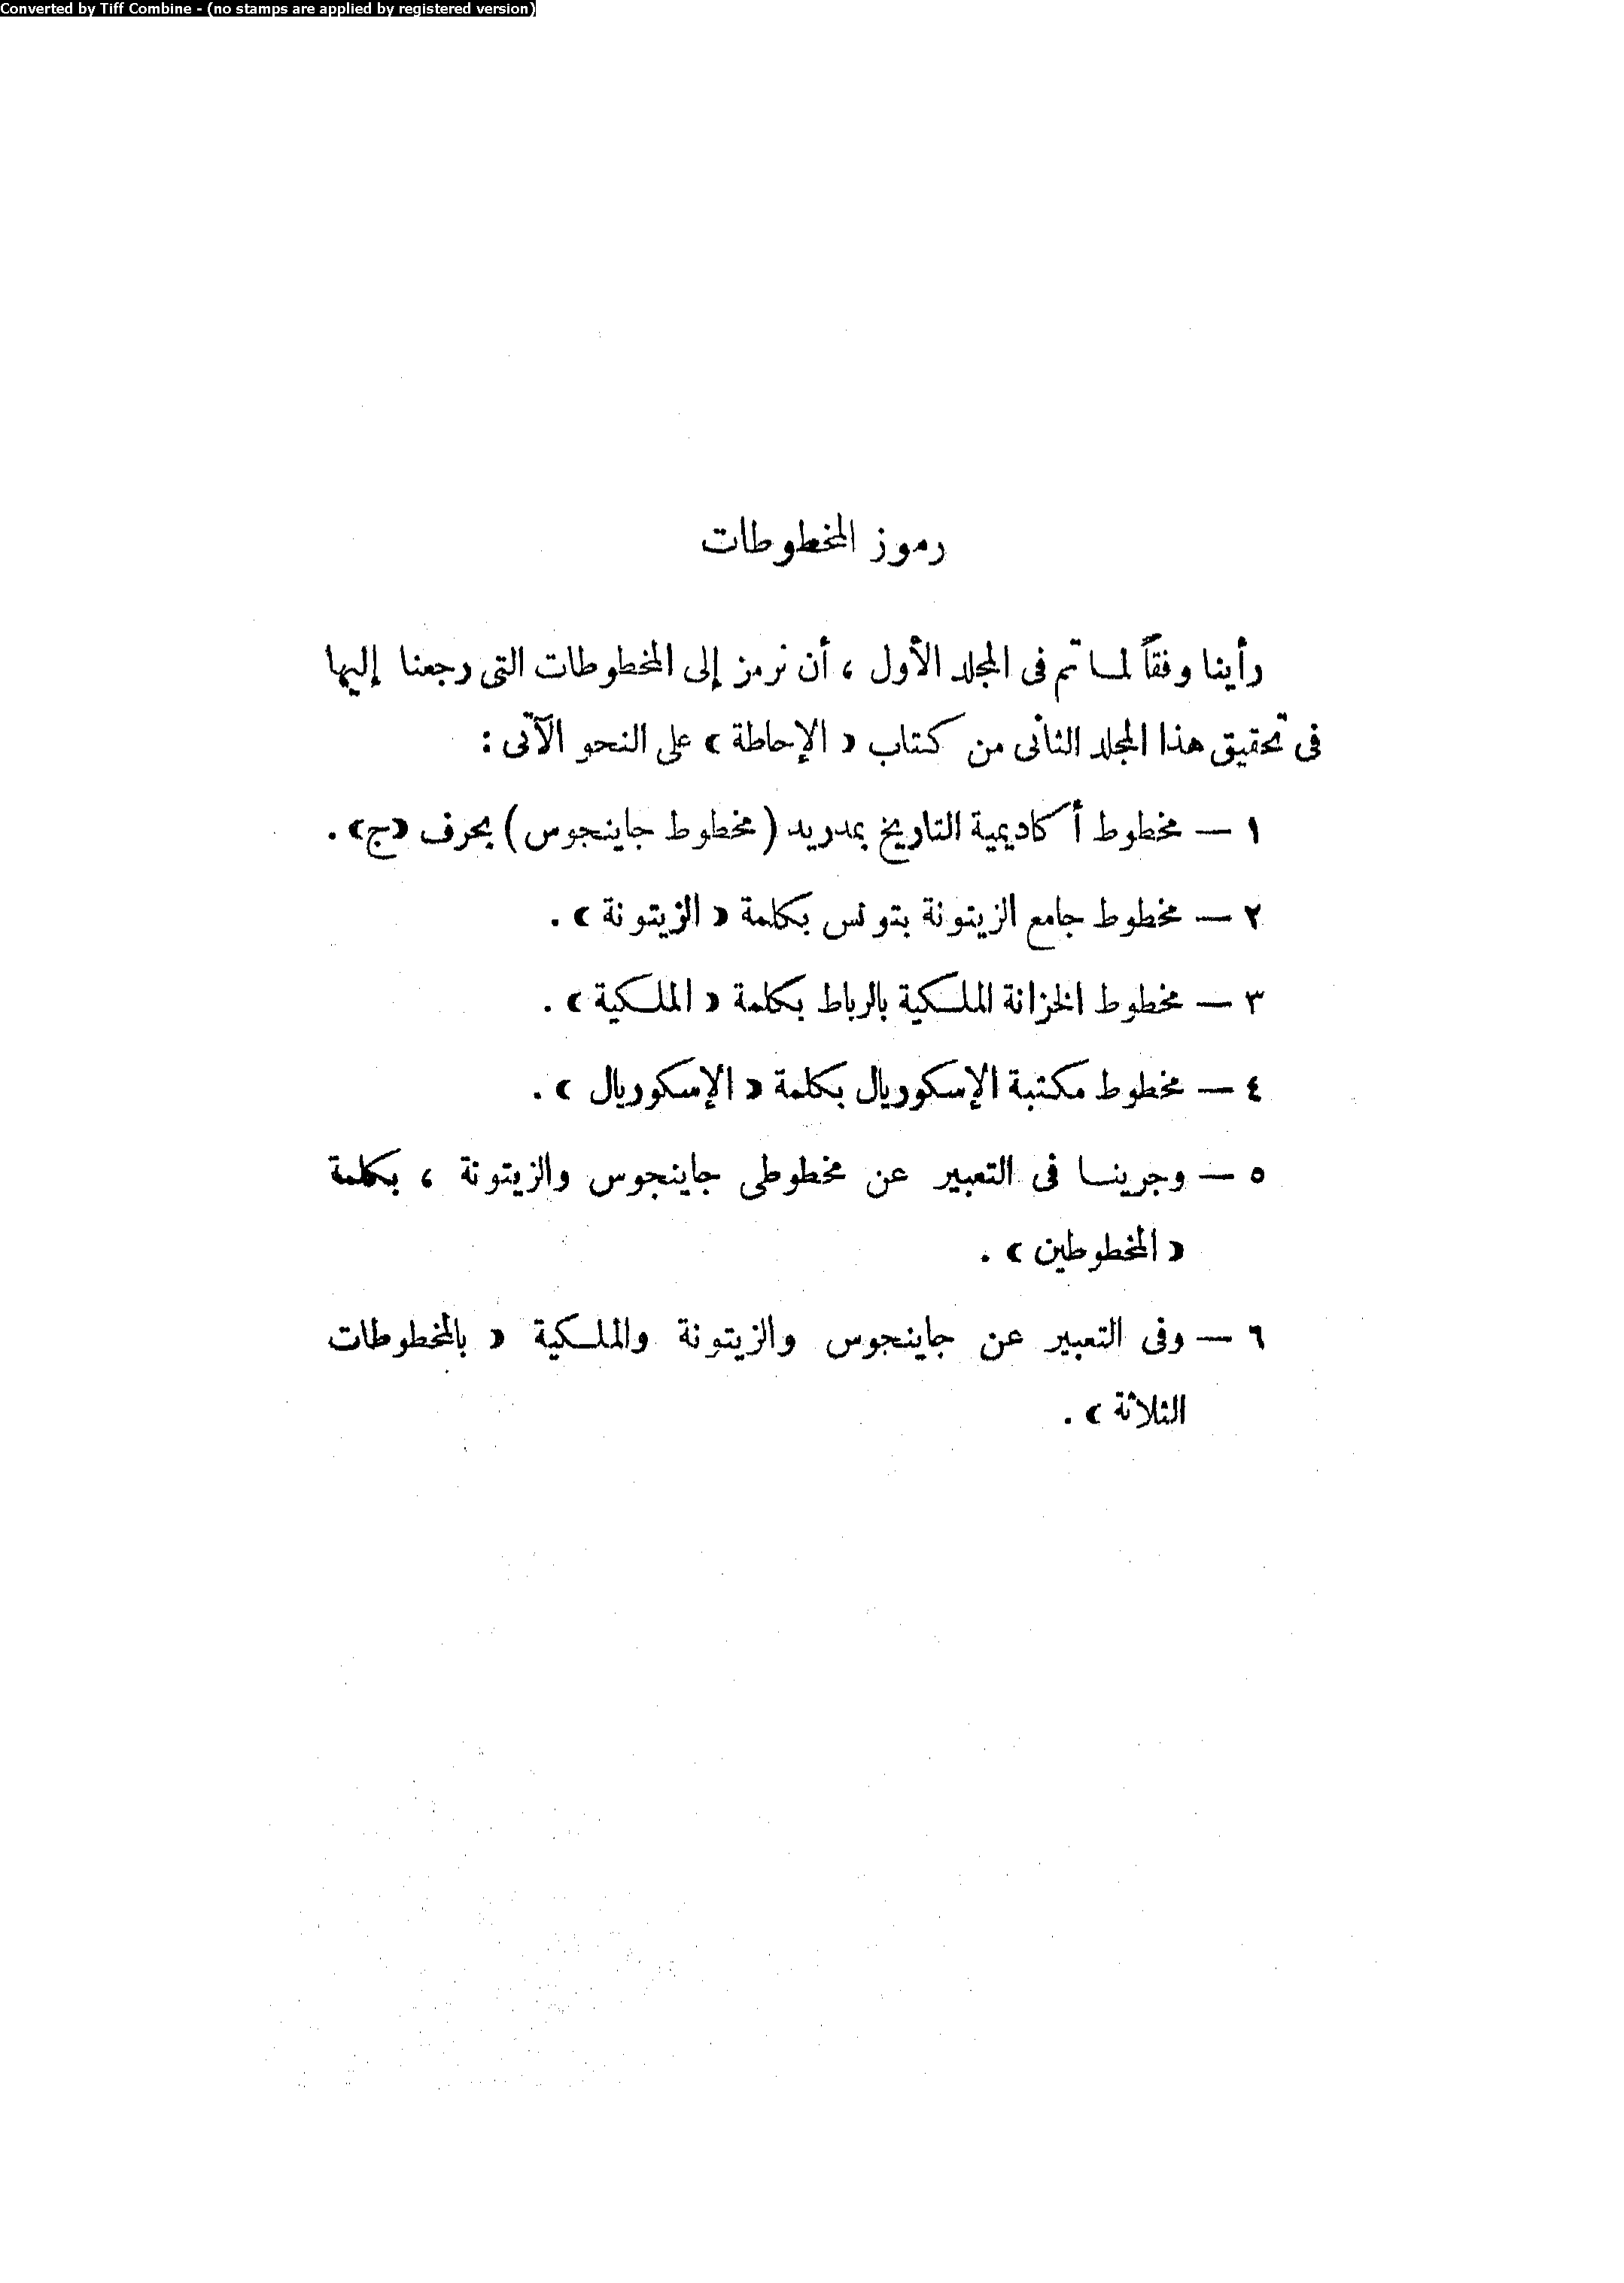 Converted by Tiff Combine - (no stamps are applied by registered version)
رموز المخطوطات
رأينا وفقاً لما تم فى المجلد الأول ، أن نرمز إلى المخطوطات التى رجعنا إليها
فى تحقيق هذا المجلد الثانى من كتاب « الإحاطة » على النحو الآتى :
١ — مخطوط أكاديمية التاريخ بمدريد (مخطوط جاينجوس) بحرف «ج» .
٢ — مخطوط جامع الزيتونة بتونس بكلمة « الزيتونة » .
٣ — مخطوط الخزانة الملكية بالرباط بكلمة « الملكية » .
٤ — مخطوط مكتبة الإسكوريال بكلمة « الإسكوريال » .
٥ — وجرينا فى التعبير عن مخطوطى جاينجوس والزيتونة ، بكلمة
« المخطوطين » .
٦ — وفى التعبير عن جاينجوس والزيتونة والملكية « بالمخطوطات
الثلاثة » .